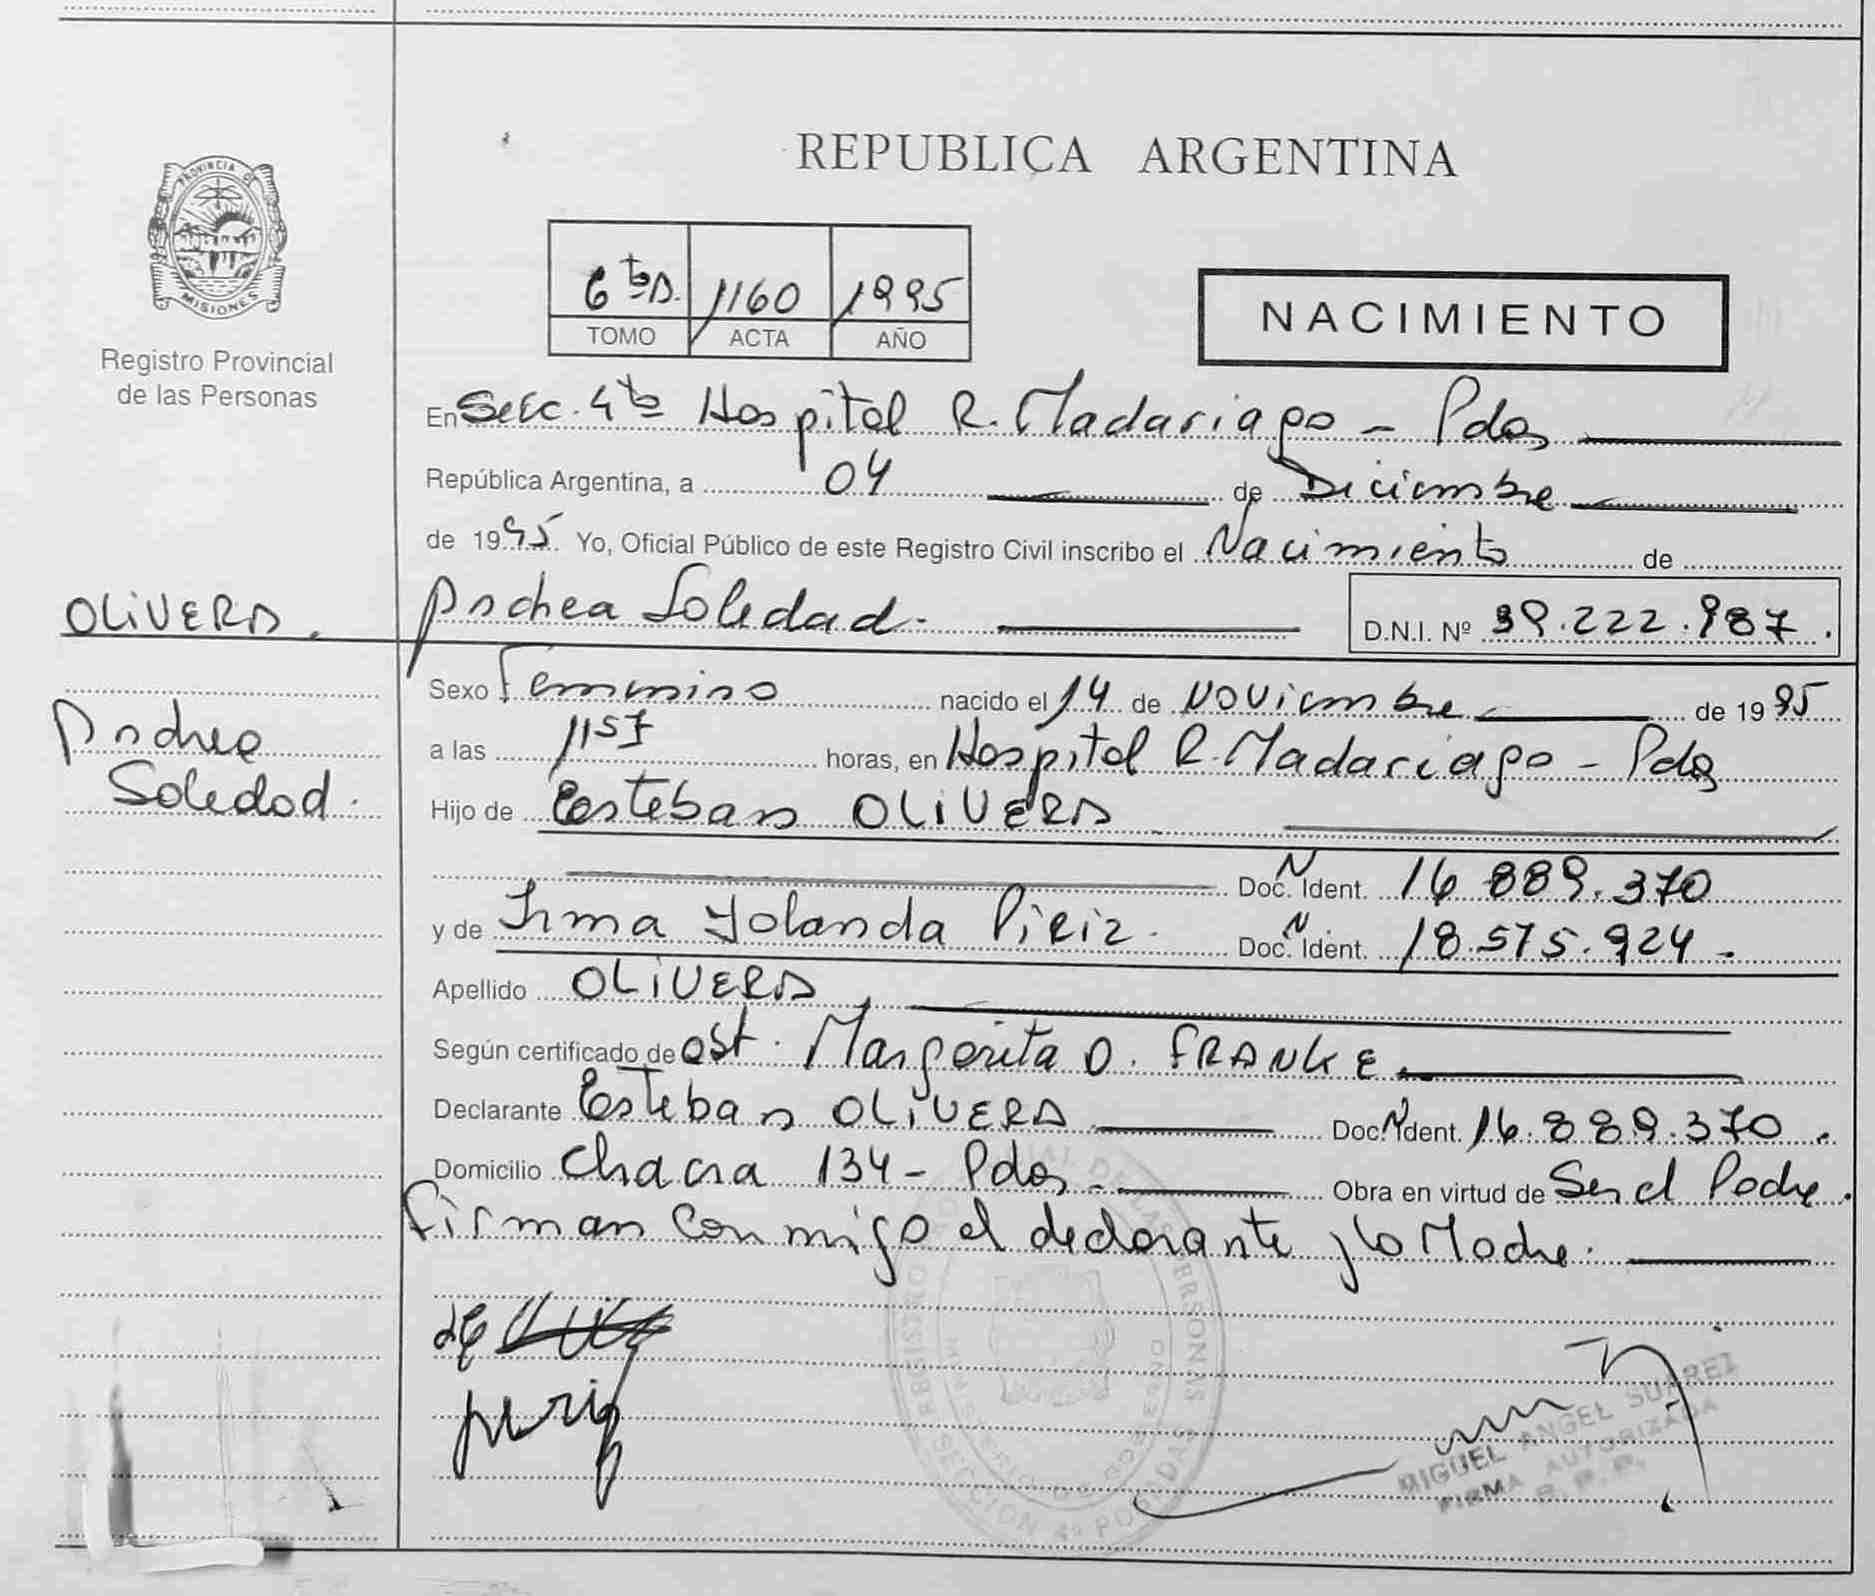 PROVINCIA DE
MISIONES
Registro Provincial
de las Personas
OLIVERA.
Andrea
Soledad.
REPUBLICA ARGENTINA
6to A. 1160 1995
TOMO ACTA AÑO
NACIMIENTO
En Secc. 4ta Hospital R. Madariaga - Pdas
República Argentina, a 04 de Diciembre
de 1995 Yo, Oficial Público de este Registro Civil inscribo el Nacimiento de
Andrea Soledad. D.N.I. Nº 39.222.987.
Sexo Femenino nacido el 14 de Noviembre de 1995
a las 1157 horas, en Hospital R. Madariaga - Pdas
Hijo de Esteban OLIVERA
Doc. N Ident. 16.889.370
y de Irma Yolanda Piriz. Doc. N Ident. 18.575.924-
Apellido OLIVERA,
Según certificado de Obst. Margarita O. FRANKE
Declarante Esteban OLIVERA Doc. N Ident. 16.889.370.
Domicilio Chacra 134 - Pdas. Obra en virtud de Ser el Padre.
Firman conmigo el declarante y la Madre.
MIGUEL ANGEL SUAREZ
FIRMA AUTORIZADA
R. P. P.
REGISTRO PROVINCIAL DE LAS PERSONAS
SECCION 4ª POSADAS
MINISTERIO DE GOBIERNO